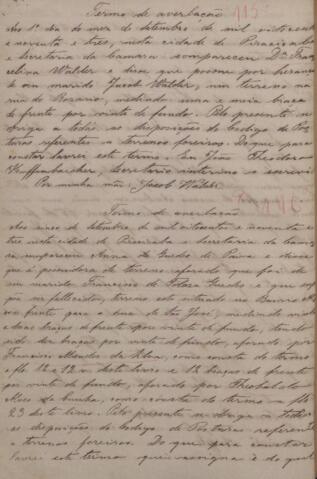 Termo de averbação 115
Aos 1º dia do mez de Setembro de mil oitocentos
e noventa e tres, nesta cidade de Piracicaba
e Secretaria da Camara compareceu Dª Fran
celina Walder e disse que possue por herança
de seu marido Jacob Walder, um terreno na
rua do Rozario, medindo uma e meia braça
de frente por vinte de fundo. Pelo presente se
obriga a todas as disposições do Codigo de Pos
turas referentes a terrenos foreiros. Do que para
constar lavrei este termo. Eu João Theodoro
Secretario interino o escrevi
Por minha mãe Jacob Walder
Termo de averbação
Aos cinco de Setembro de mil oitocentos e noventa e
tres nesta cidade de Piracicaba e Secretaria da Cama
ra compareceu Anna de Guedes de Paiva e disse
que é possuidora de terreno aforado que foi de
seu marido Francisco de Guedes e que
fallecido, terreno este situado no Bairro
com frente para a rua de São José, medindo vinte
e duas braças de frente por vinte de fundo, sendo
dez braças por vinte de fundo, aforado por
Francisco Mendes da Silva, como consta do termo
a fls 12 e 12 v deste livro e 12 braças de frente
por vinte de fundo, aforado por Theobaldo
da Cunha, como consta do termo a fls
23 deste livro. Pelo presente se obriga a todas
as disposições do Codigo de Posturas referente
a terrenos foreiros. Do que para constar
lavrei este termo que assigna e do qual